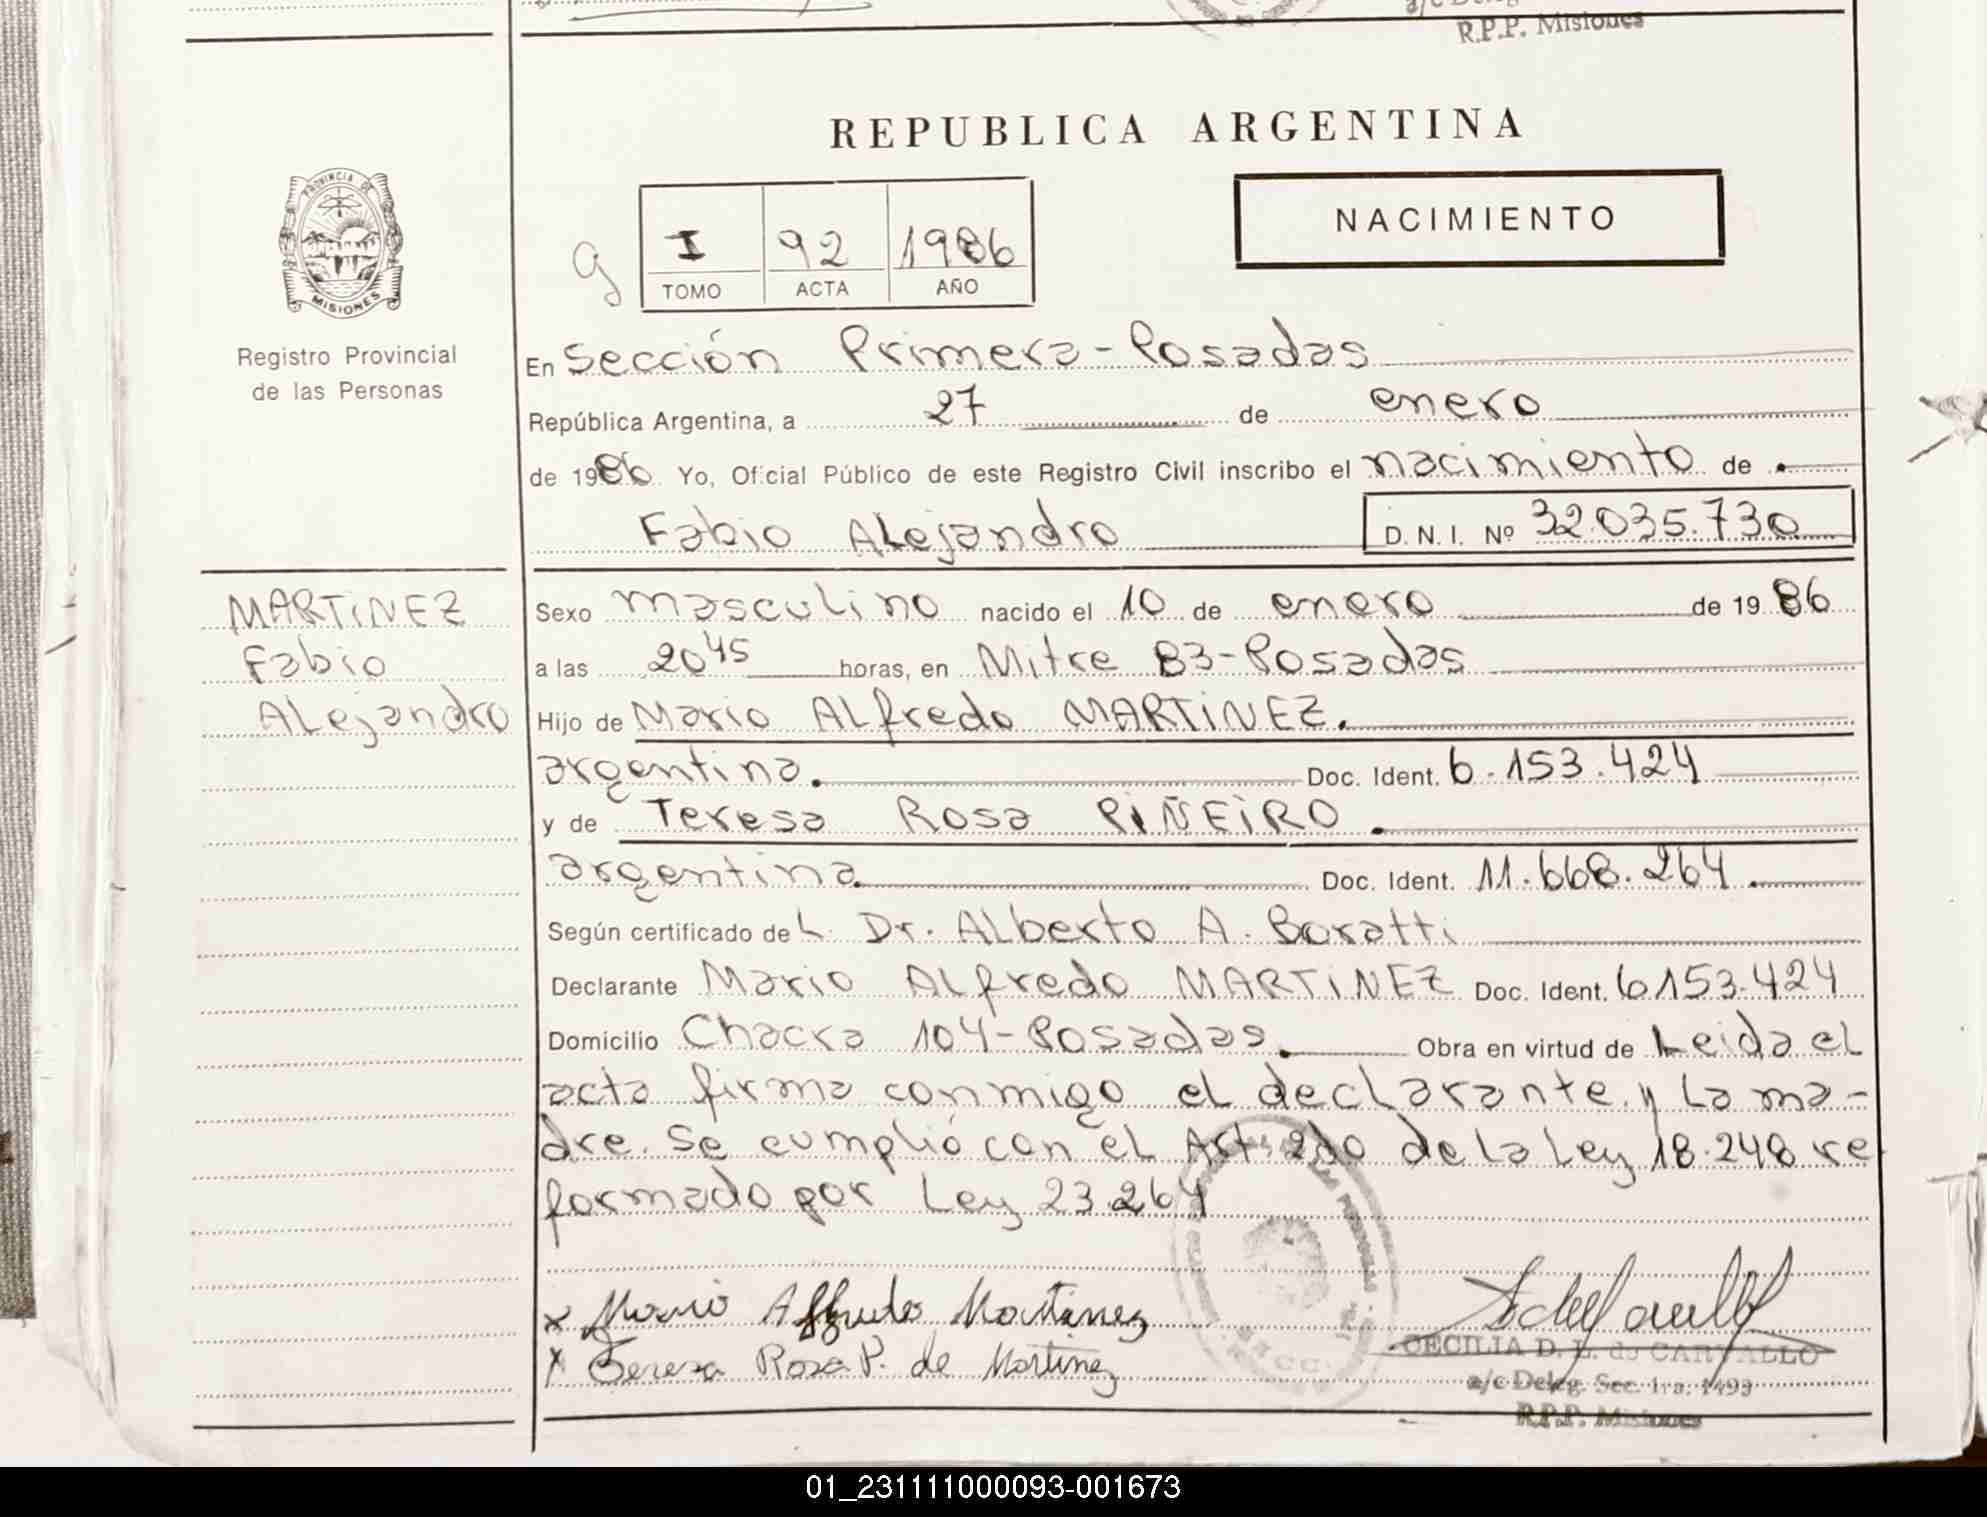 R.P.P. Misiones
REPUBLICA ARGENTINA
PROVINCIA DE
MISIONES
Registro Provincial
de las Personas
g
I 92 1986
TOMO ACTA AÑO
NACIMIENTO
En Sección Primera - Posadas
República Argentina, a 27 de enero
de 1986 Yo, Oficial Público de este Registro Civil inscribo el nacimiento de
Fabio Alejandro D.N.I. Nº 32.035.730
MARTiNEZ
Fabio
Alejandro
Sexo masculino nacido el 10 de enero de 1986
a las 20 45 horas, en Mitre 83 - Posadas
Hijo de Mario Alfredo MARTiNEZ.
argentina. Doc. Ident. 6.153.424
y de Teresa Rosa PiÑEiRO.
argentina Doc. Ident. 11.668.264.
Según certificado del Dr. Alberto A. Boratti
Declarante Mario Alfredo MARTiNEZ Doc. Ident. 6153.424
Domicilio Chacra 104 - Posadas. Obra en virtud de Leida el
acta firma conmigo el declarante y la ma-
dre. Se cumplió con el Art. 2do de la Ley 18.248 re
formado por Ley 23.264
x Mario Alfredo Martinez
x Teresa Rosa P. de Martinez
CECILIA D. L. de CARVALLO
a/c Deleg. Sec. 1ra. 1493
R.P.P. Misiones
01_231111000093-001673